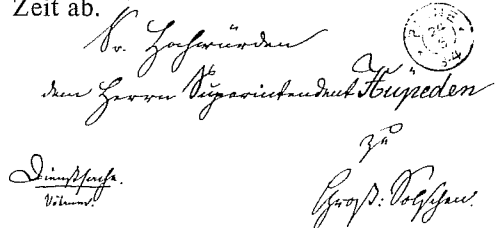 Zeit ab.
Sr. Hochwürden
dem Herrn Superintendent Hüpeden
zu
Groß: Solschen.
Dienstsache.